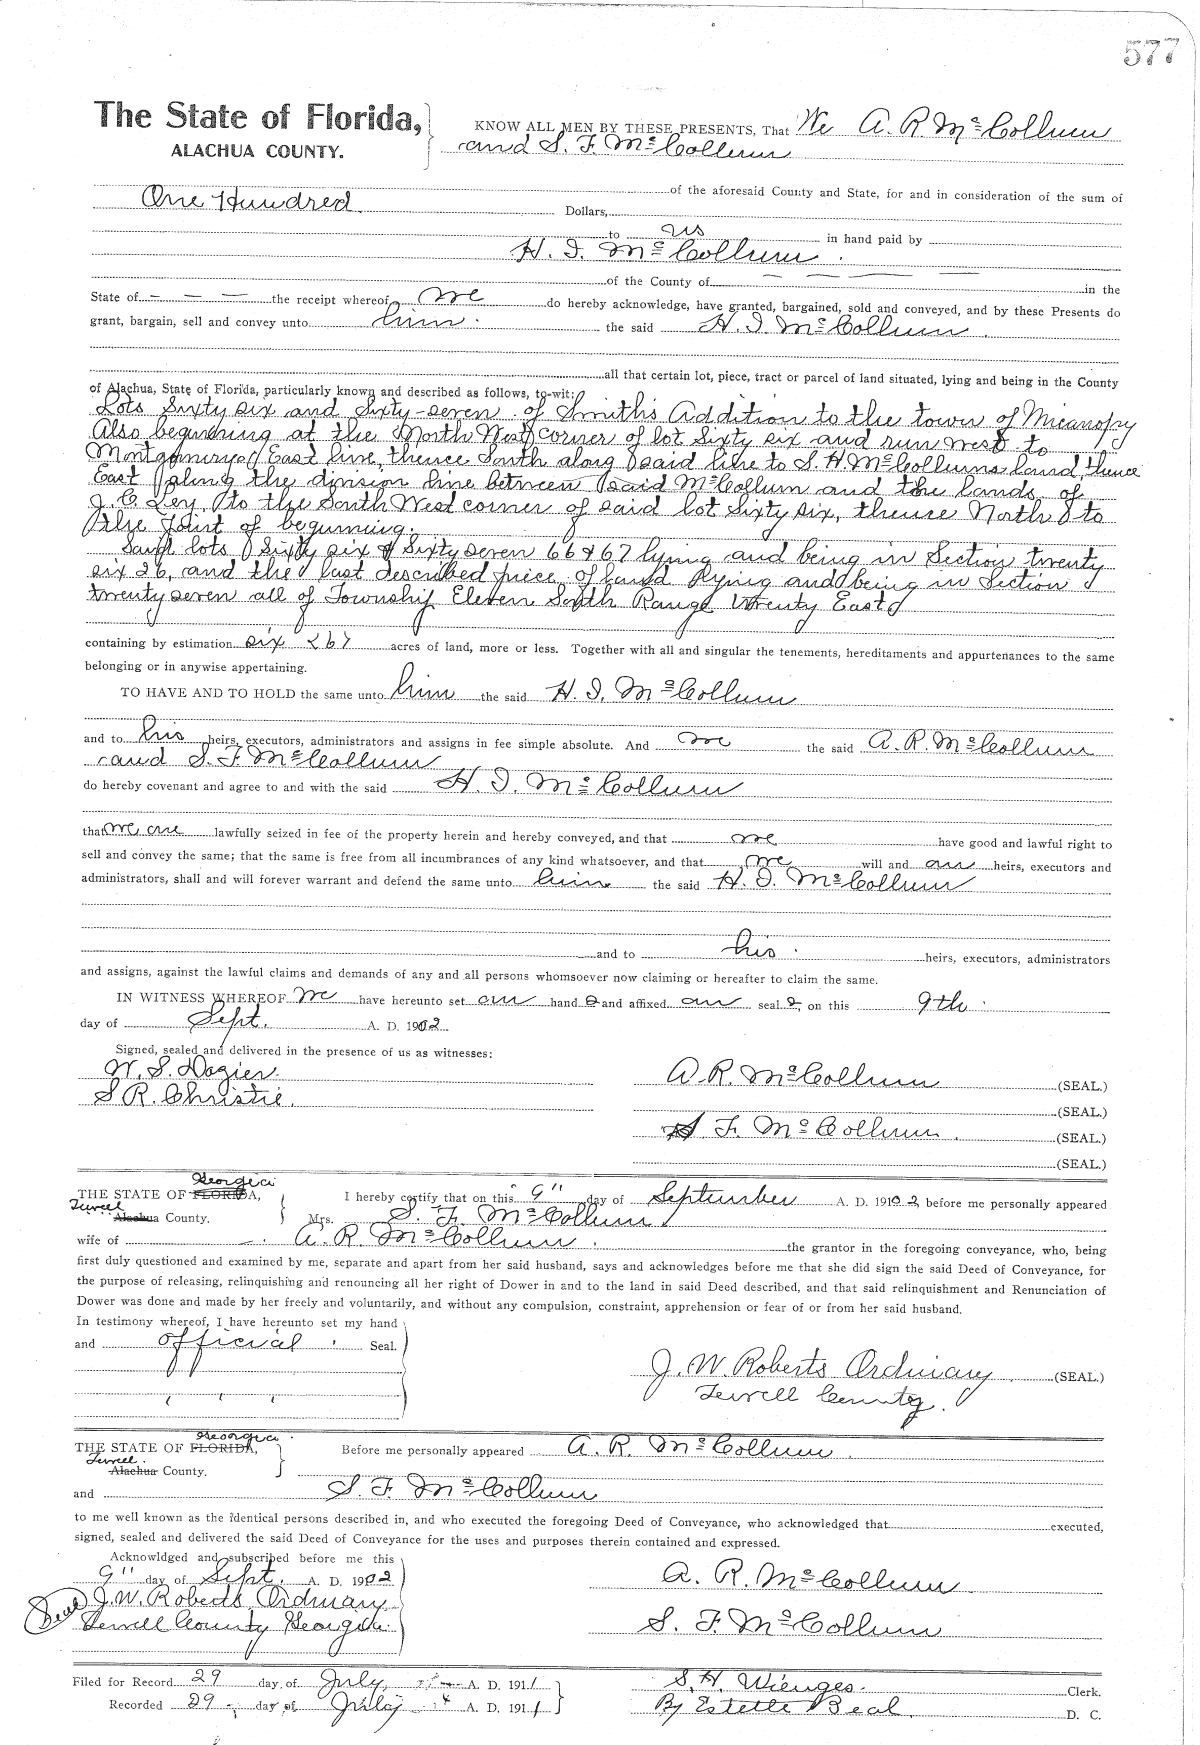 577
The State of Florida,
ALACHUA COUNTY.
KNOW ALL MEN BY THESE PRESENTS, That We A. R. McCollum
and S. F. McCollum
of the aforesaid County and State, for and in consideration of the sum of
One Hundred Dollars,
to us in hand paid by
H. I. McCollum.
of the County of — — — — in the
State of — — — the receipt whereof we do hereby acknowledge, have granted, bargained, sold and conveyed, and by these Presents do
grant, bargain, sell and convey unto him. the said H. I. McCollum.
all that certain lot, piece, tract or parcel of land situated, lying and being in the County
of Alachua, State of Florida, particularly known and described as follows, to-wit:
Lots Sixty six and Sixty-seven of Smiths Addition to the town of Micanopy
Also beginning at the North West corner of lot Sixty six and run west to
Montgomerys East line, thence South along said line to S. H. McCollums land, thence
East along the division line between said McCollum and the lands of
J. C. Ley, to the South West corner of said lot Sixty six, thence North to
the point of beginning.
Said lots Sixty six & Sixty seven 66 & 67 lying and being in Section twenty
six 26, and the last described piece of land lying and being in Section
twenty seven all of Township Eleven South Range twenty East
containing by estimation six <6> acres of land, more or less. Together with all and singular the tenements, hereditaments and appurtenances to the same
belonging or in anywise appertaining.
TO HAVE AND TO HOLD the same unto him the said H. I. McCollum
and to his heirs, executors, administrators and assigns in fee simple absolute. And we the said A. R. McCollum
and S. F. McCollum
do hereby covenant and agree to and with the said H. I. McCollum
that we are lawfully seized in fee of the property herein and hereby conveyed, and that we have good and lawful right to
sell and convey the same; that the same is free from all incumbrances of any kind whatsoever, and that we will and our heirs, executors and
administrators, shall and will forever warrant and defend the same unto him the said H. I. McCollum
and to his. heirs, executors, administrators
and assigns, against the lawful claims and demands of any and all persons whomsoever now claiming or hereafter to claim the same.
IN WITNESS WHEREOF We have hereunto set our hand s and affixed our seal s, on this 9th
day of Sept. A. D. 1902
Signed, sealed and delivered in the presence of us as witnesses:
W. S. Dozier.
S R. Christie.
A. R. McCollum (SEAL.)
(SEAL.)
S. F. McCollum. (SEAL.)
(SEAL.)
Georgia
THE STATE OF FLORIDA,
Terrell
Alachua County.
I hereby certify that on this 9" day of September A. D. 1902, before me personally appeared
Mrs. S. F. McCollum
wife of A. R. McCollum. the grantor in the foregoing conveyance, who, being
first duly questioned and examined by me, separate and apart from her said husband, says and acknowledges before me that she did sign the said Deed of Conveyance, for
the purpose of releasing, relinquishing and renouncing all her right of Dower in and to the land in said Deed described, and that said relinquishment and Renunciation of
Dower was done and made by her freely and voluntarily, and without any compulsion, constraint, apprehension or fear of or from her said husband.
In testimony whereof, I have hereunto set my hand
and official Seal.
J. W. Roberts Ordinary (SEAL.)
Terrell County.
Georgia.
THE STATE OF FLORIDA,
Terrell.
Alachua County.
Before me personally appeared A. R. McCollum.
and S. F. McCollum
to me well known as the identical persons described in, and who executed the foregoing Deed of Conveyance, who acknowledged that executed,
signed, sealed and delivered the said Deed of Conveyance for the uses and purposes therein contained and expressed.
Acknowldged and subscribed before me this
9" day of Sept. A. D. 1902
Seal J. W. Roberts Ordinary
Terrell County Georgia.
A. R. McCollum
S. F. McCollum
Filed for Record 29 day of July, A. D. 1911
Recorded 29 day of July A. D. 1911
S. H. Wienges. Clerk.
By Estelle Beal. D. C.